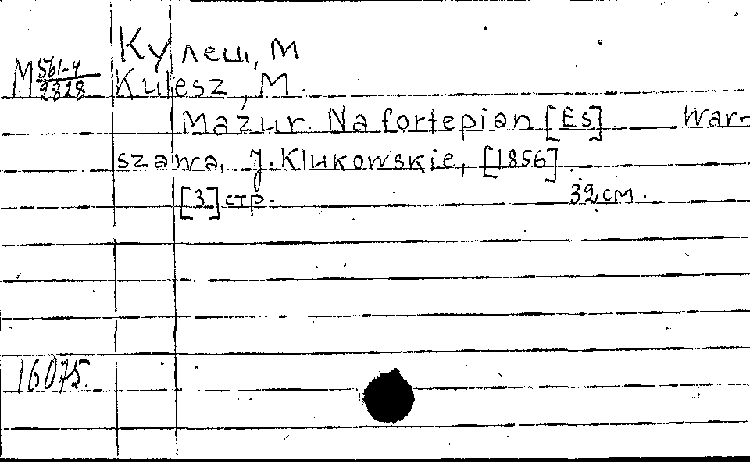 Кулеш, М
М 561-4/2328 Kulesz, M.
Mazur. Na fortepian [Es] War-
szawa, J. Klukowskie, [1856].
[3] стр. 32 см.
16075.